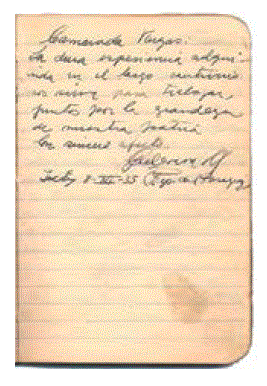 Camarada Vargas:
La dura experiencia adqui-
rida en el largo cautiverio
nos sirve para trabajar,
juntos por la grandeza
de nuestra patria
Con sincero afecto.
8-XII-55